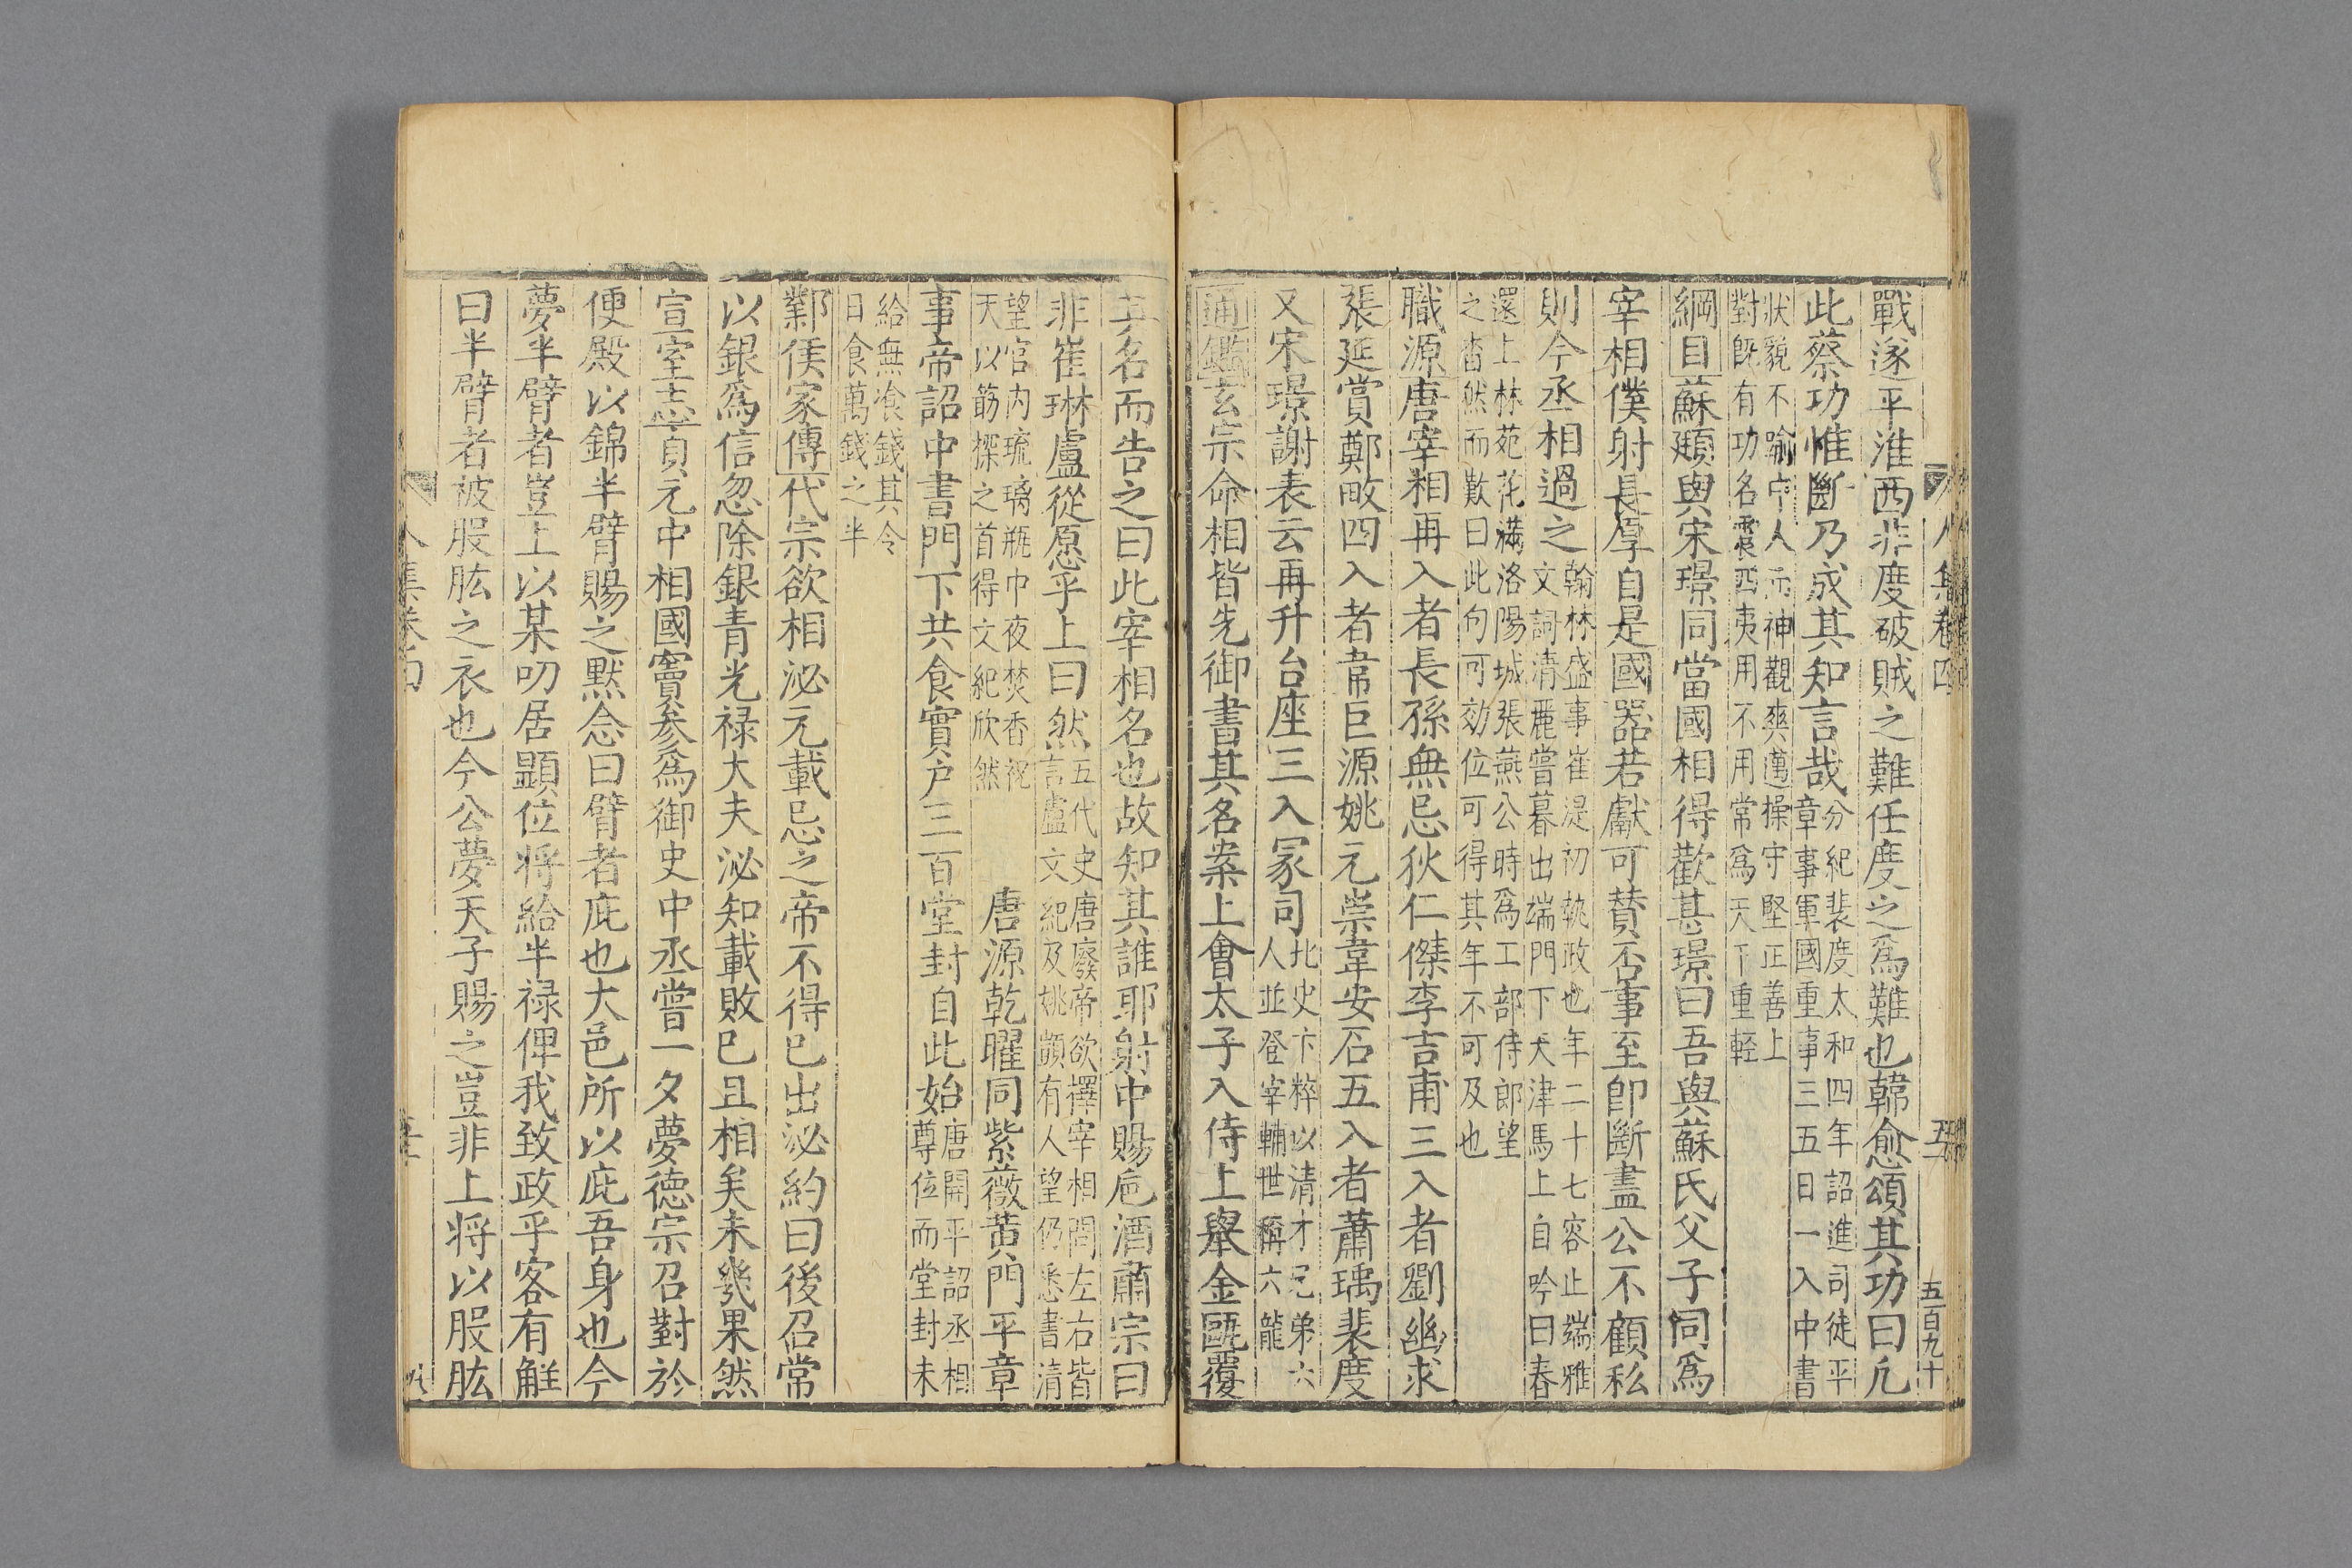 戰遂平淮西非度破賊之難任度之爲難也韓愈頌其功曰凢
此蔡功惟斷乃成其知言哉分紀裴度太和四年詔進司徒平
章事軍國重事三五日一入中書
狀貌不踰中人而神觀爽邁操守堅正善上
對旣有功名震四夷用不用常爲天下重輕
綱目蘇頲與宋璟同當國相得歡甚璟曰吾與蘇氏父子同爲
宰相僕射長厚自是國器若獻可贊否事至即斷盡公不顧私
則今丞相過之翰林盛事崔湜初執政也年二十七容止端雅
文詞清麗嘗暮出端門下天津馬上自吟曰春
還上林苑花滿洛陽城張燕公時爲工部侍郎望
之杳然而歎曰此句可効位可得其年不可及也
職源唐宰相再入者長孫無忌狄仁傑李吉甫三入者劉幽求
張延賞鄭畋四入者韋巨源姚元崇韋安石五入者蕭瑀裴度
又宋璟謝表云再升台座三入冡司北史卞粹以清才兄弟六
人並登宰輔世稱六龍
通鑑玄宗命相皆先御書其名案上會太子入侍上舉金甌覆
其名而告之曰此宰相名也故知其誰耶射中賜巵酒肅宗曰
非崔琳盧從愿乎上曰然五代史唐廢帝欲擇宰相問左右皆
言盧文紀及姚顗有人望仍悉書清
望官内琉璃瓶中夜焚香祝
天以筯探之首得文紀欣然
唐源乾曜同紫薇黄門平章
事帝詔中書門下共食實户三百堂封自此始唐開平詔丞相
尊位而堂封未
給無飡錢其令
日食萬錢之半
鄴侯家傳代宗欲相泌元載忌之帝不得已出泌約曰後召常
以銀爲信忽除銀青光祿大夫泌知載敗已且相矣未幾果然
宣室志貞元中相國竇參爲御史中丞嘗一夕夢德宗召對於
便殿以錦半臂賜之默念曰臂者庇也大邑所以庇吾身也今
夢半臂者豈上以某叨居顯位将給半祿俾我致政乎客有觧
曰半臂者被股肱之衣也今公夢天子賜之豈非上将以股肱
人集卷四
五百九十